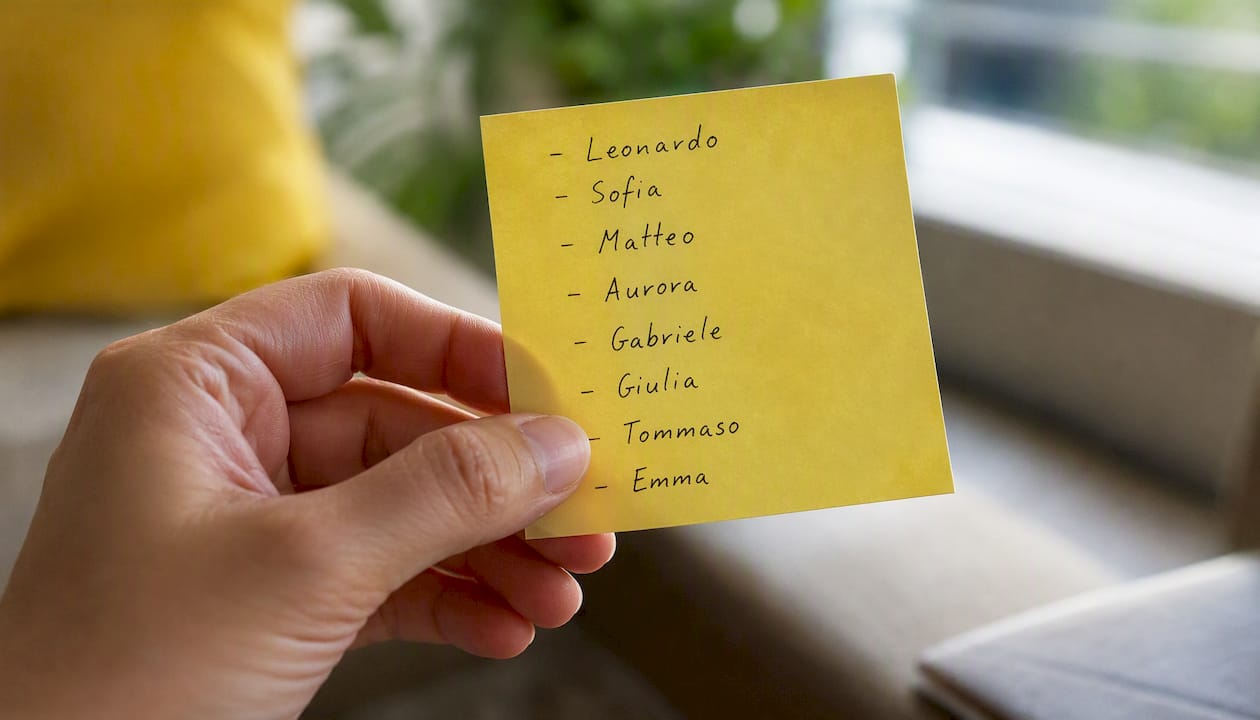 - Leonardo
- Sofia
- Matteo
- Aurora
- Gabriele
- Giulia
- Tommaso
- Emma